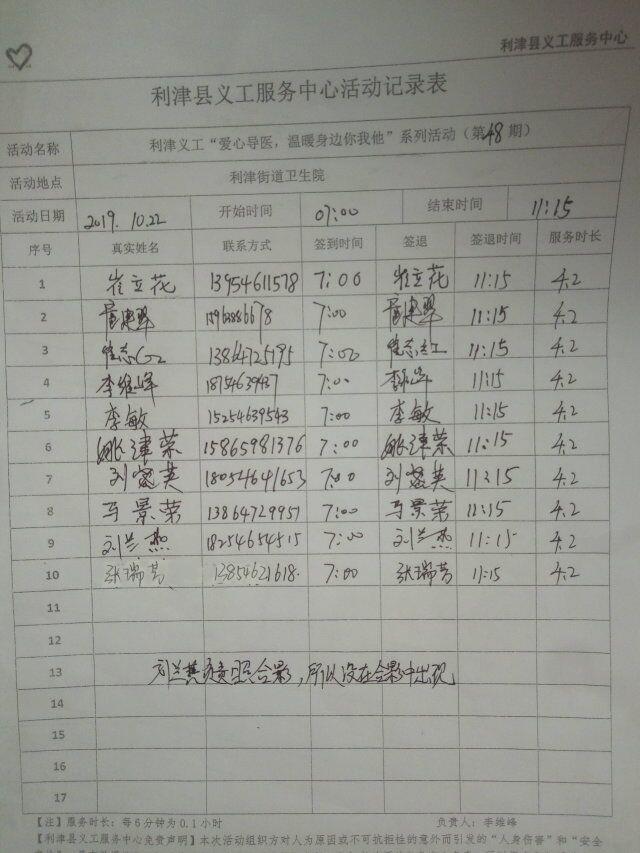 利津县义工服务中心
利津县义工服务中心活动记录表
活动名称 利津义工“爱心导医，温暖身边你我他”系列活动（第48期）
活动地点 利津街道卫生院
活动日期 2019.10.22 开始时间 07:00 结束时间 11:15
序号 真实姓名 联系方式 签到时间 签退 签退时间 服务时长
1 崔立花 13954611578 7:00 崔立花 11:15 4.2
2 7:00 11:15 4.2
3 13864725195 7:00 11:15 4.2
4 李维峰 7:00 11:15 4.2
5 李敏 15254639543 7:00 李敏 11:15 4.2
6 姚津荣 15865981376 7:00 姚津荣 11:15 4.2
7 18054641653 7:00 11:15 4.2
8 马景荣 13864729957 7:00 马景荣 11:15 4.2
9 刘兰 18254654515 7:00 刘兰 11:15 4.2
10 张瑞芳 13854621618 7:00 张瑞芳 11:15 4.2
11
12
13 刘兰 负责照合影，所以没在合影中出现
14
15
16
17
【注】服务时长：每6分钟为0.1小时 负责人：李维峰
【利津县义工服务中心免责声明】本次活动组织方对人为原因或不可抗拒性的意外而引发的“人身伤害”和“安全